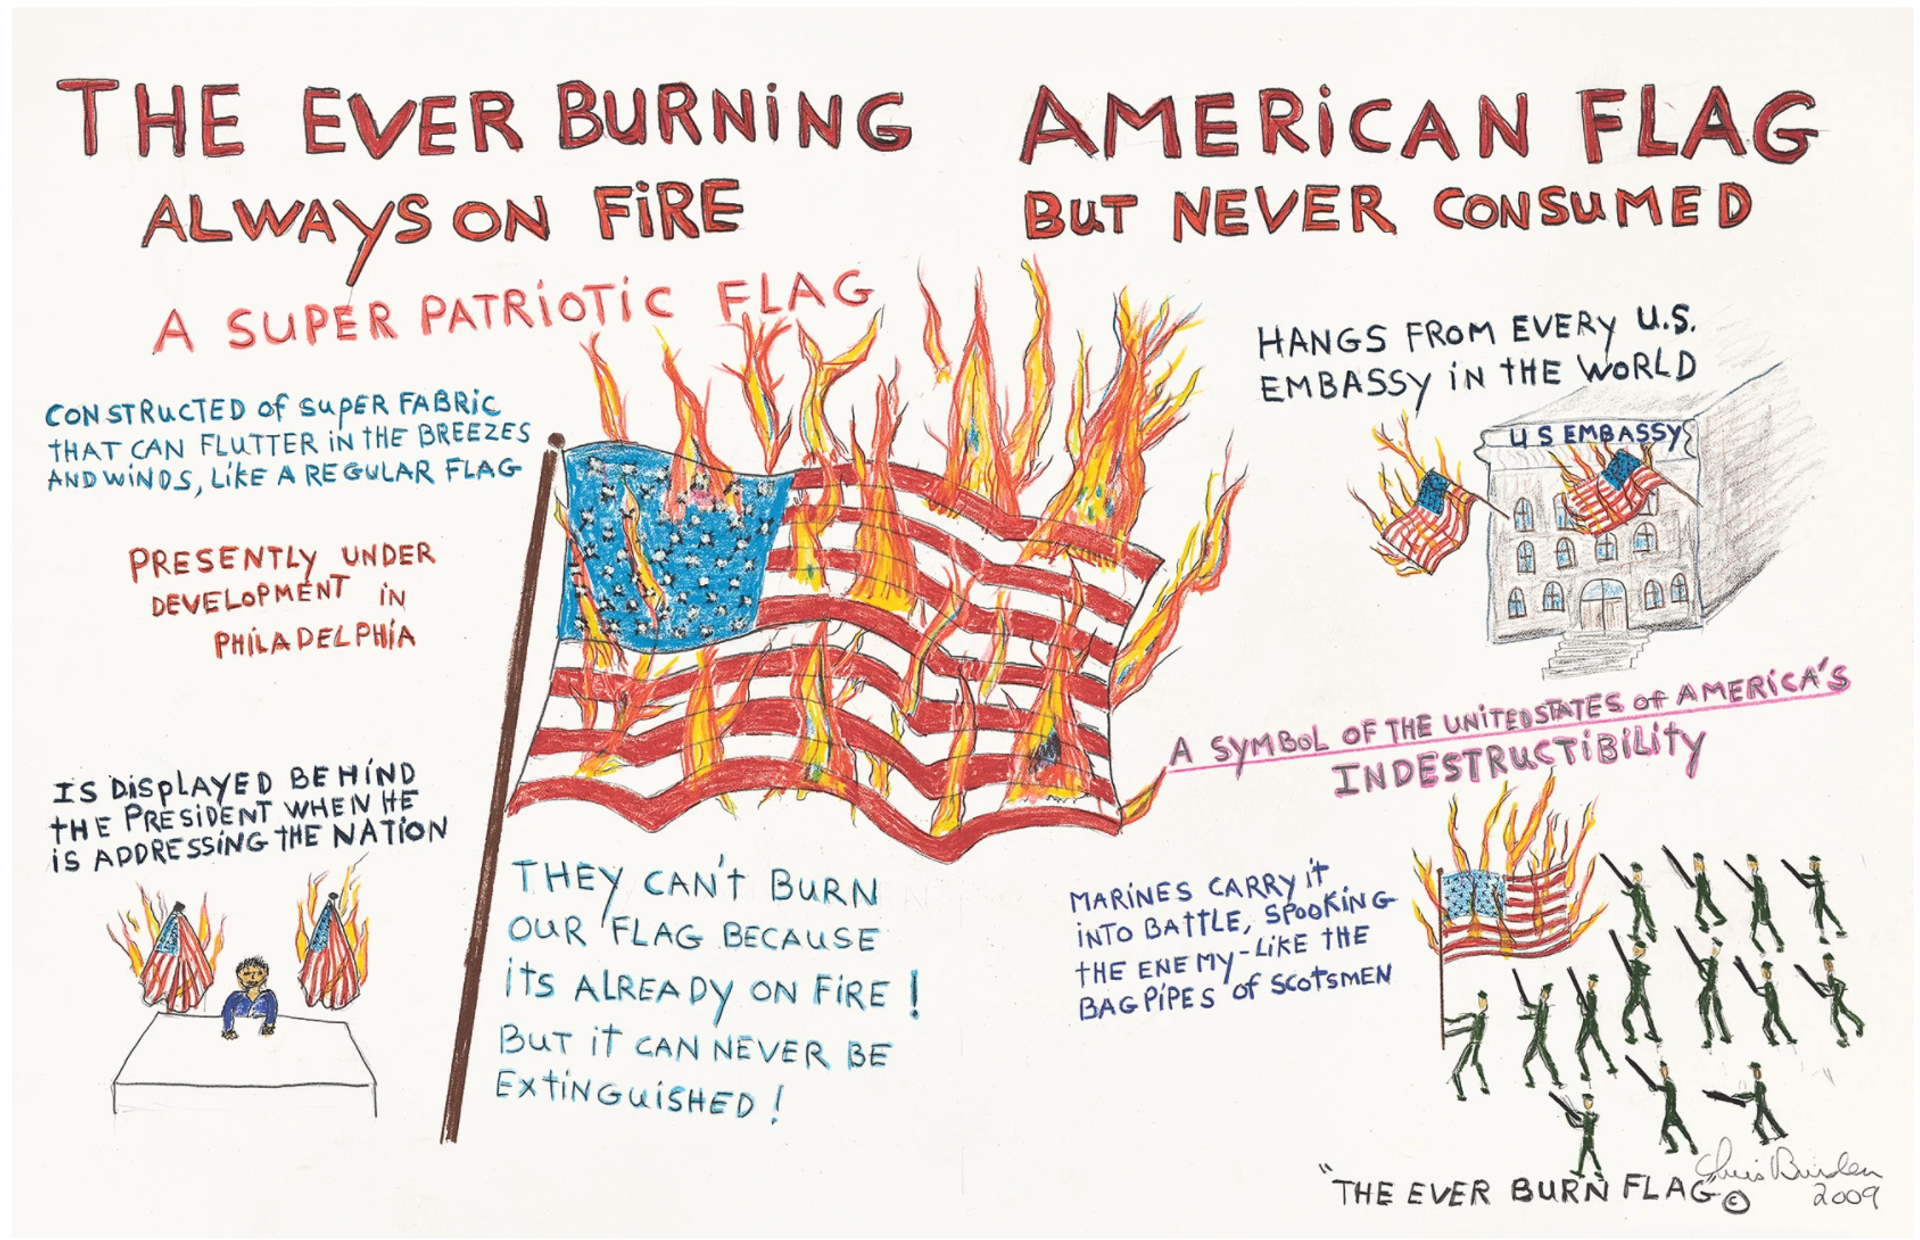 THE EVER BURNiNG AMERiCAN FLAG
ALWAYS ON FiRE BUT NEVER CONSUMED
A SUPER PATRiOTiC FLAG
CONSTRUCTED of SUPER FABRiC
THAT CAN FLUTTER iN THE BREEZES
AND WiNDS, LiKE A REGULAR FLAG
PRESENTLY UNDER
DEVELOPMENT iN
PHiLADELPHiA
IS DiSPLAYED BEHiND
THE PRESiDENT WHEN HE
iS ADDRESSiNG THE NATiON
THEY CAN'T BURN
OUR FLAG BECAUSE
iTS ALREADY ON FiRE!
BUT iT CAN NEVER BE
EXTiNGUiSHED!
HANGS FROM EVERY U.S.
EMBASSY iN THE WORLD
U S EMBASSY
A SYMBOL OF THE UNiTED STATES of AMERiCA'S
INDESTRUCTiBiLiTY
MARiNES CARRY iT
iNTO BATTLE, SPOOKiNG
THE ENEMY-LiKE THE
BAGPiPES of SCOTSMEN
"THE EVER BURN FLAG ©
Chris Burden
2009